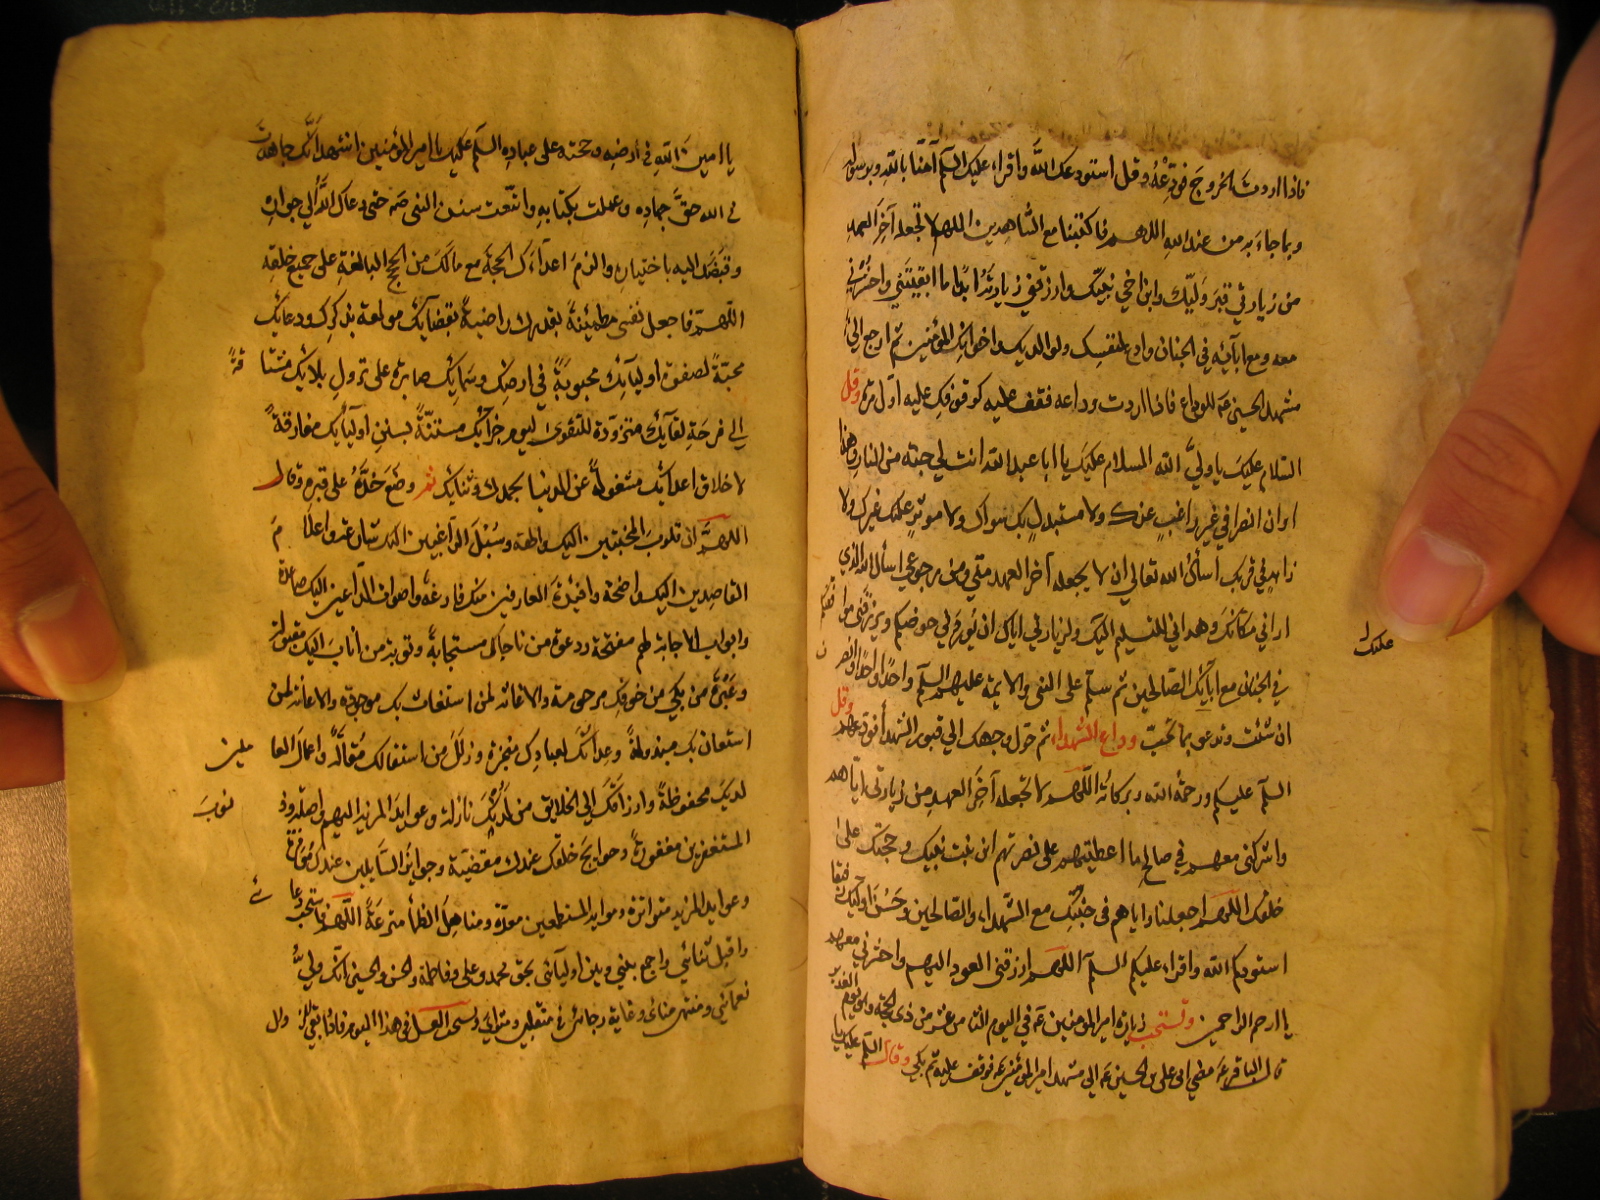 فاذا اردت الخروج فودعه وقل استودعك الله واقراء عليك السلم آمنا بالله وبرسوله
وبما جاء به من عند الله اللهم فاكتبنا مع الشاهدين اللهم لا تجعله آخر العهد
من زيارتي قبر وليك وابن اخي نبيك وارزقني زيارته ابدا ما ابقيتني واحشرني
معه ومع آبآئه في الجنان وادع لنفسك ولوالديك ولاخوانك المؤمنين ثم ارجع الى
مشهد الحسين عه للوداع فاذا اردت وداعه فقف عليه كوقوفك عليه اول مرة وقل
السلام عليك يا ولي الله السلام عليك يا ابا عبد الله انت لي جنة من النار وهذا
اوان انصرافي غير راغب عنك ولا مستبدل بك سواك ولا موثر عليك غيرك ولا
زاهد في قربك اسأل الله تعالى ان لا يجعله آخر العهد مني ومن رجوعي اسأل الله الذي
اراني مكانك وهداني للتسليم عليك ولزيارتي اياك ان يوردني حوضكم ويرزقني مرافقتكم
عليك
في الجنان مع آبآئك الصالحين ثم سلم على النبي والائمة عليهم السلم واحدا واحدا وانصرف
ان شئت وتدعو بما تحب وداع الشهداء ثم حول وجهك الى قبور الشهدا فودعهم وقل
السلم عليكم ورحمة الله وبركاته اللهم لا تجعله آخر العهد من زيارتي اياهم
واشركني معهم في صالح ما اعطيتهم على نصرتهم ابن بنت نبيك وحجتك على
خلقك اللهم اجعلنا واياهم في جنتك مع الشهداء والصالحين وحسن اولئك رفيقا
استودعكم الله واقراء عليكم السلم اللهم ارزقني العود اليهم واحشرني معهم
يا ارحم الراحمين وتستحب زيارة امير المؤمنين عه في اليوم الثامن عشر من ذي الحجة وهو يوم الغدير
قال الباقر عه مضى ابي علي بن الحسين عه الى مشهد امير المؤمنين عه فوقف عليه ثم بكى وقال السلم عليك يا
يا امين الله في ارضه وحجته على عباده السلم عليك يا امير المؤمنين اشهد انك جاهدت
في الله حق جهاده وعملت بكتابه واتبعت سنن النبي صه حتى دعاك الله الى جواره
وقبضك اليه باختياره والزم اعداءك الحجة مع مالك من الحجج البالغة على جميع خلقه
اللهم فاجعل نفسي مطمئنة بقدرك راضية بقضآئك مولعة بذكرك ودعائك
محبة لصفوة اوليآئك محبوبة في ارضك وسمائك صابرة على نزول بلائك مشتاقة
الى فرحة لقائك متزودة للتقوى ليوم جزآئك مستنة بسنن اوليآئك مفارقة
لاخلاق اعدائك مشغولة عن الدنيا بحمدك وثنائك ثم وضع خده على قبره وقال
اللهم ان قلوب المخبتين اليك والهة وسبل الراغبين اليك شارعة واعلام
القاصدين اليك واضحة وافئدة العارفين منك فازعة واصوات الداعين اليك صاعدة
وابواب الاجابة لهم مفتحة ودعوة من ناجاك مستجابة وتوبة من اناب اليك مقبولة
وعبرة من بكى من خوفك مرحومة والاغاثة لمن استغاث بك موجودة والاعانة لمن
استعان بك مبذولة وعداتك لعبادك منجزة وزلل من استقالك مقالة واعمال العاملين
لديك محفوظة وارزاقك الى الخلايق من لدنك نازلة وعوايد المزيد اليهم واصلة وذنوب
المستغفرين مغفورة وحوايج خلقك عندك مقضية وجوايز السايلين عندك موفرة
وعوايد المزيد متواترة وموايد المستطعمين معدة ومناهل الظمأ مترعة اللهم فاستجب دعائي
واقبل ثنائي واجمع بيني وبين اوليائي بحق محمد وعلي وفاطمة والحسن والحسين انك ولي
نعمآئي ومنتهى مناي وغاية رجائي في منقلبي ومثواي وتستحب الغسل في هذا اليوم فاذا بقي للزوال